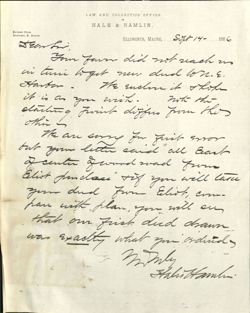 LAW AND COLLECTION OFFICE
OF
HALE & HAMLIN.
ELLSWORTH, MAINE, Sept 14 1886
Dear Sir,
Your favor did not reach us
in time to get new deed to N.E.
Harbor. We enclose it & hope
it is as you wish. Note the
starting point differs from the
other.
We are sorry for first error
but your letter said all East
of center of wood road from
Eliot purchase & if you will take
your deed from Eliot, com
pare with plan, you will see
that our first deed drawn
was exactly what you ordered.
Yr Truly
Hale & Hamlin